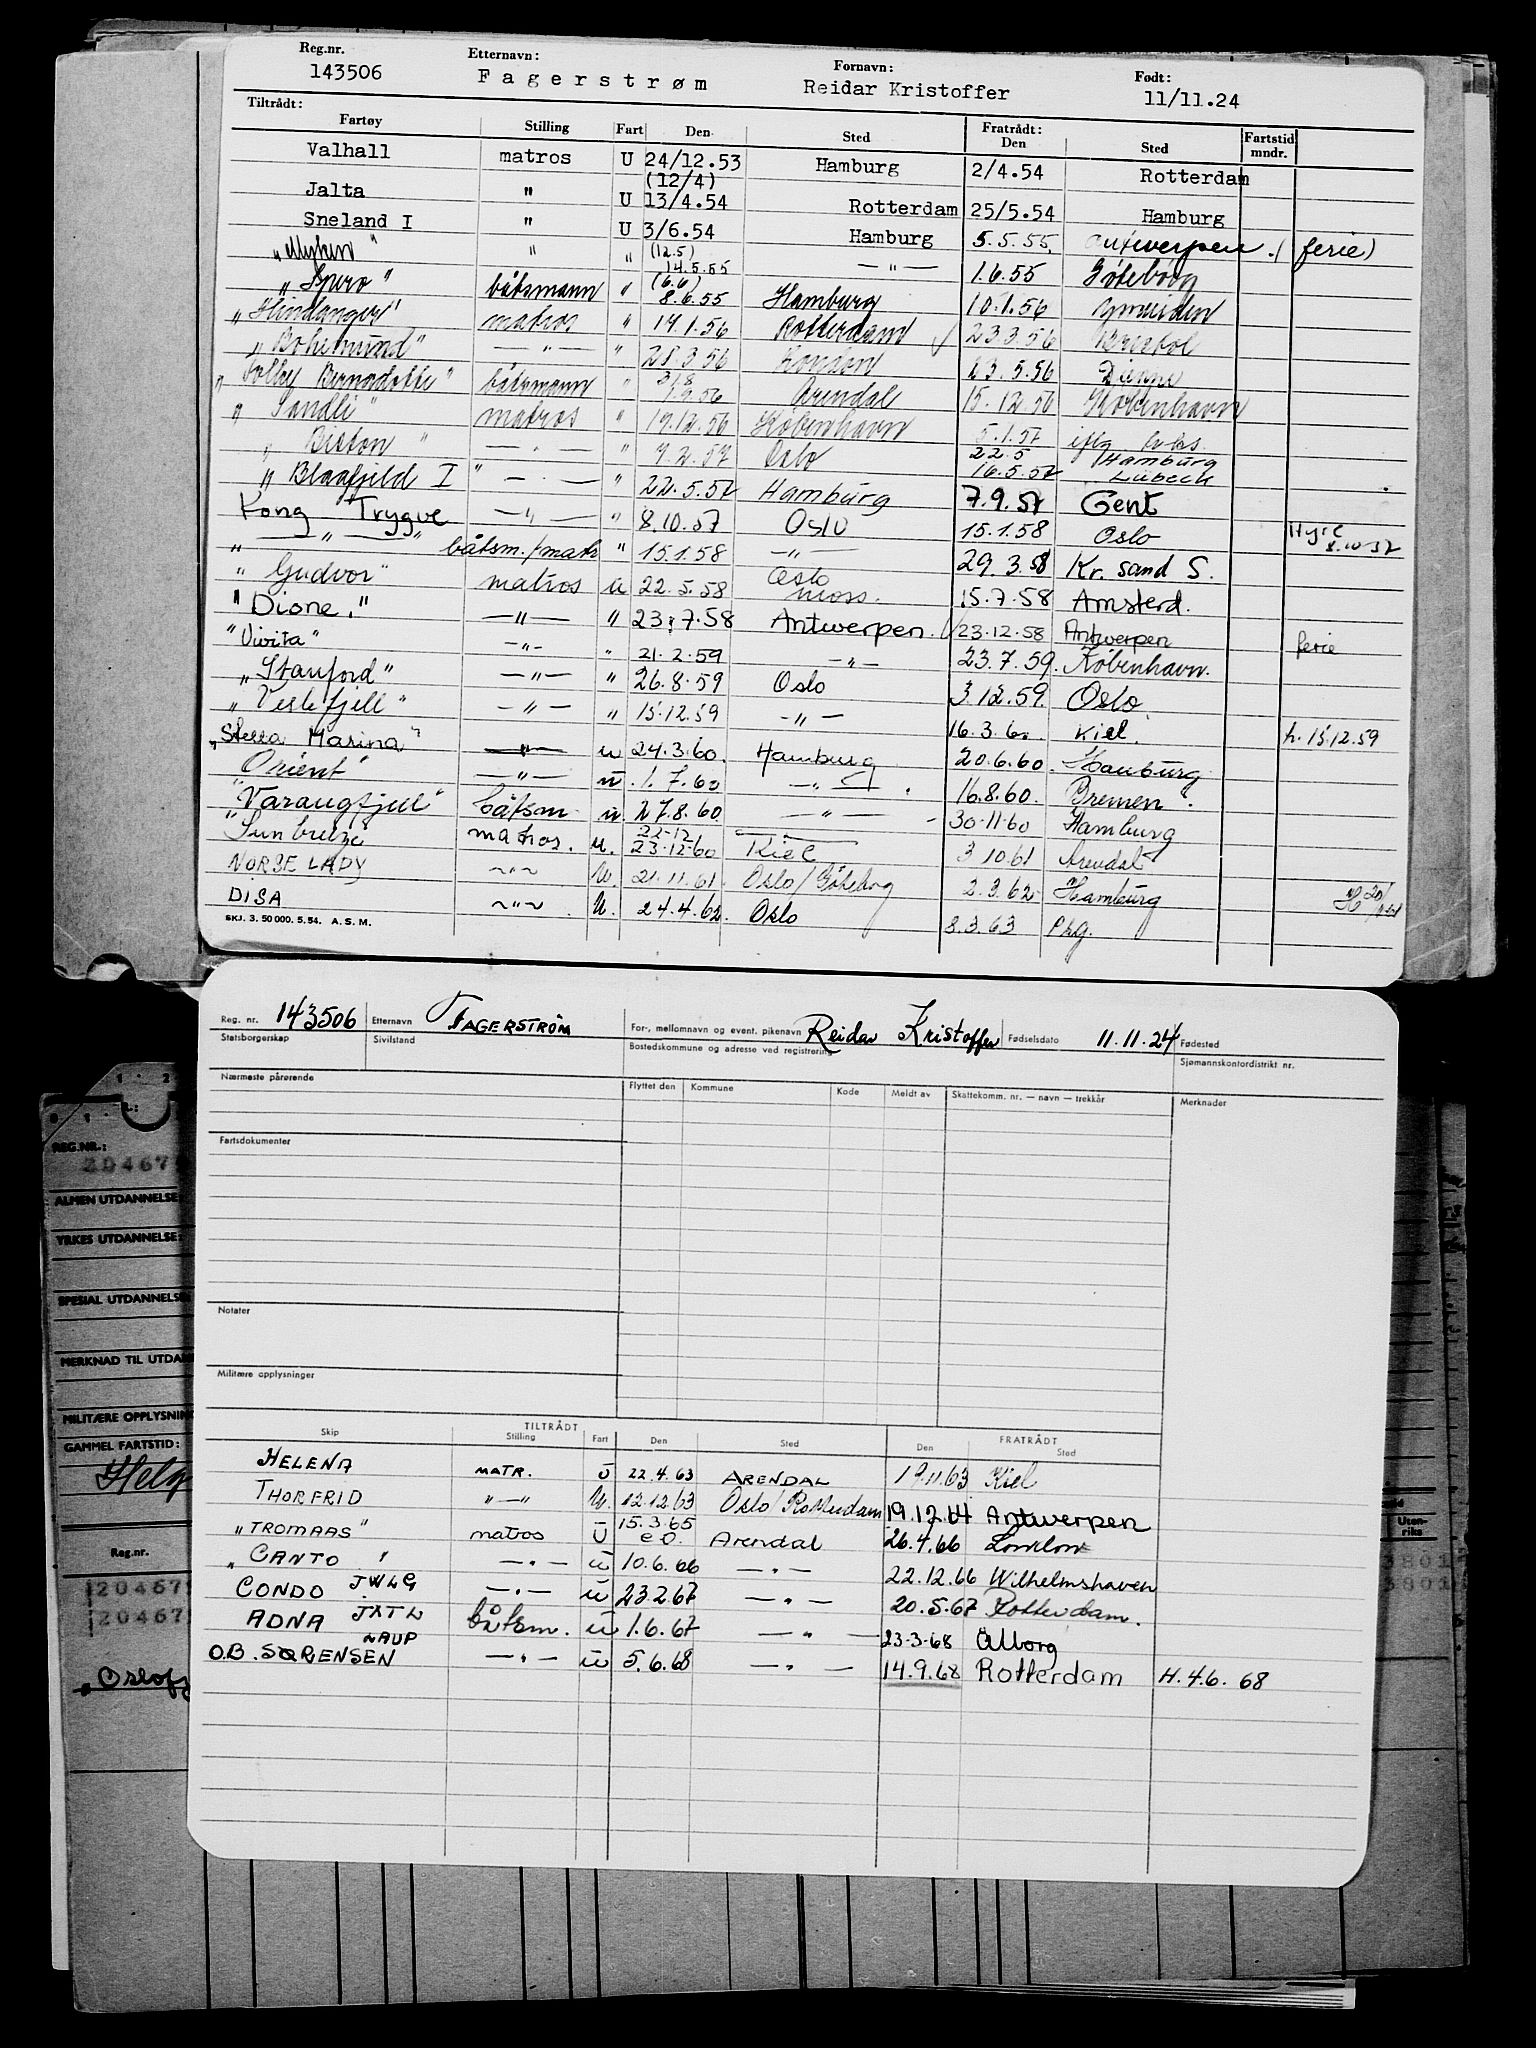 Reg.nr. Etternavn: Fornavn: Født:
143506 Fagerstrøm Reidar Kristoffer 11/11.24
Tiltrådt: Fratrådt:
Fartøy Stilling Fart Den Sted Den Sted Fartstid mndr.
Valhall matros U 24/12.53 Hamburg 2/4.54 Rotterdam
(12/4)
Jalta " U 13/4.54 Rotterdam 25/5.54 Hamburg
Sneland I " U 3/6.54 Hamburg 5.5.55 Antwerpen. (ferie)
(12.5)
"Myken" " " 14.5.55 —"— 1.6.55 Göteborg
(6.6)
"Spero" båtsmann " 8.6.55 Hamburg 10.1.56 Ymuiden
"Hindanger" matros " 14.1.56 Rotterdam 23.3.56 Bristol
"Bohemund" —"— " 28.3.56 London 23.5.56
31.8
"Folke Bernadotte" båtsmann " 1.9.56 Arendal 15.12.56 København
"Sandli" matros " 19.12.56 København 5.1.57
22.5 Hamburg
—"— " 9.2.57 Oslo 16.5.57 Lübeck
"Blaafjeld I" —"— " 22.5.57 Hamburg 7.9.57 Gent
Kong Trygve —"— " 8.10.57 Oslo 15.1.58 Oslo Hyre 8.10-57
"—"—" båtsm./matr " 15.1.58 —"— 29.3.58 Kr. sand S.
"Gudvor" matros u 22.5.58 Oslo Moss. 15.7.58 Amsterd.
"Dione." —"— " 23.7.58 Antwerpen. 23.12.58 Antwerpen ferie
"Vivita" —"— " 21.2.59 —"— 23.7.59. København.
"Stanford" —"— " 26.8.59 Oslo 3.12.59 Oslo
"Veslefjell" —"— " 15.12.59 —"— 16.3.60. Kiel. h. 15.12.59
"Stella Marina" —"— u 24.3.60. Hamburg 20.6.60. Hamburg
"Orient" —"— u. 1.7.60 —"—. 16.8.60. Bremen.
"Varangfjell" båtsm. u. 27.8.60. —"— 30-11-60 Hamburg
22-12
"Sunbreize" matros. u. 23-12-60 Kiel 3 10.61 Arendal
NORSE LADY —"— U. 21.11.61. Oslo/Göteborg 2.3.62 Hamburg
DISA —"— U. 24.4.62. Oslo 8.3.63 Phg.
SKJ. 3. 50 000. 5.54. A.S.M.
Reg. nr. 143506 Etternavn FAGERSTRØM For-, mellomnavn og event. pikenavn Reidar Kristoffer Fødselsdato 11.11.24 Fødested
Statsborgerskap Sivilstand Bostedskommune og adresse ved registrering Sjømannskontordistrikt nr.
Nærmeste pårørende Flyttet den Kommune Kode Meldt av Skattekomm. nr. — navn — trekkår Merknader
Fartsdokumenter
Notater
Militære opplysninger
TILTRÅDT FRATRÅDT
Skip Stilling Fart Den Sted Den Sted
HELENA MATR. U 22.4.63 ARENDAL 19.11.63 Kiel
THORFRID "—" U. 12.12.63 Oslo/Rotterdam 19.12.64 Antwerpen
"TROMAAS" matros U 15.3.65 e.O. Arendal 26.4.66 London
"CANTO" —"— u 10.6.66 —"— 22.12.66 Wilhelmshaven
CONDO JWLG —"— u 23.2.67 —"— 20.5.67 Rotterdam.
ADNA JXTL båtsm. u 1.6.67 —"— 23-3-68 Ålborg
LAUP
O.B. SØRENSEN —"— u 5.6.68 —"— 14.9.68 Rotterdam H. 4.6. 68
REG.NR.:
20467
ALMEN UTDANNELSE
YRKES UTDANNELSE:
SPESIAL UTDANNELSE
MERKNAD TIL UTDAN
MILITÆRE OPPLYSNIN
GAMMEL FARTSTID:
Helg
Reg.nr.
20467
20467
Oslofj
Uten-riks
3801
3801